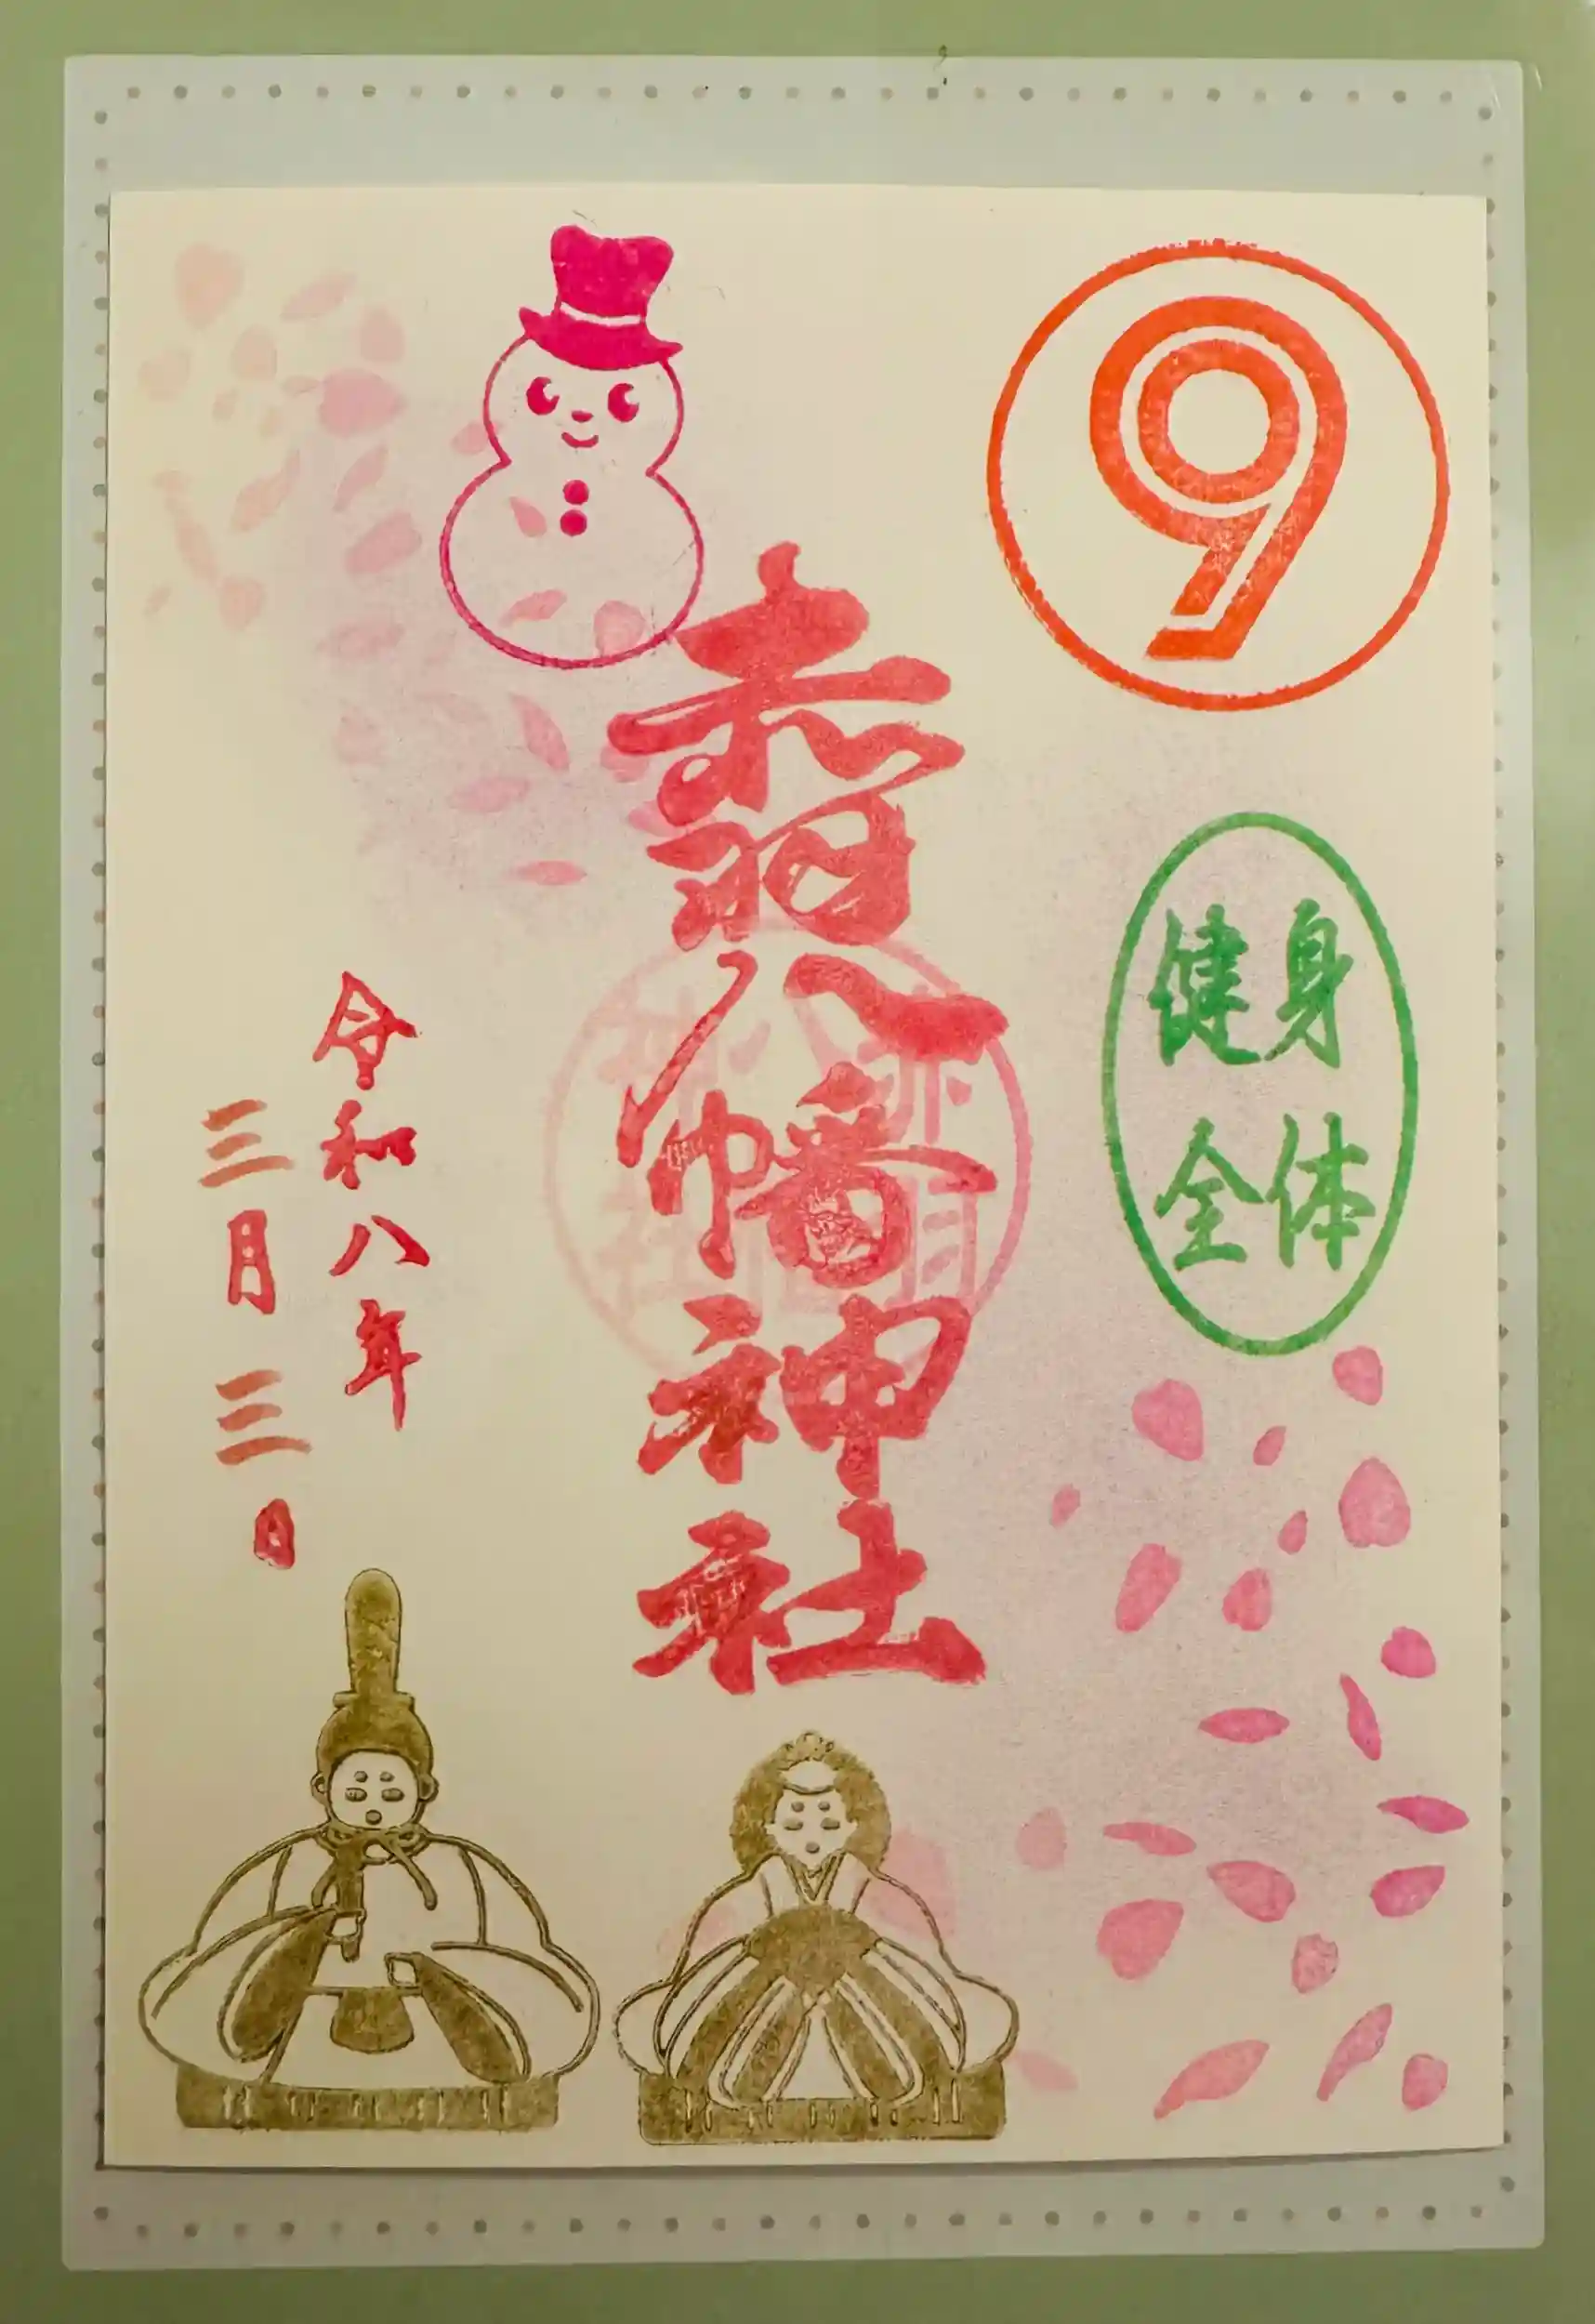 9
身体
健全
赤羽八幡神社
令和八年
三月三日